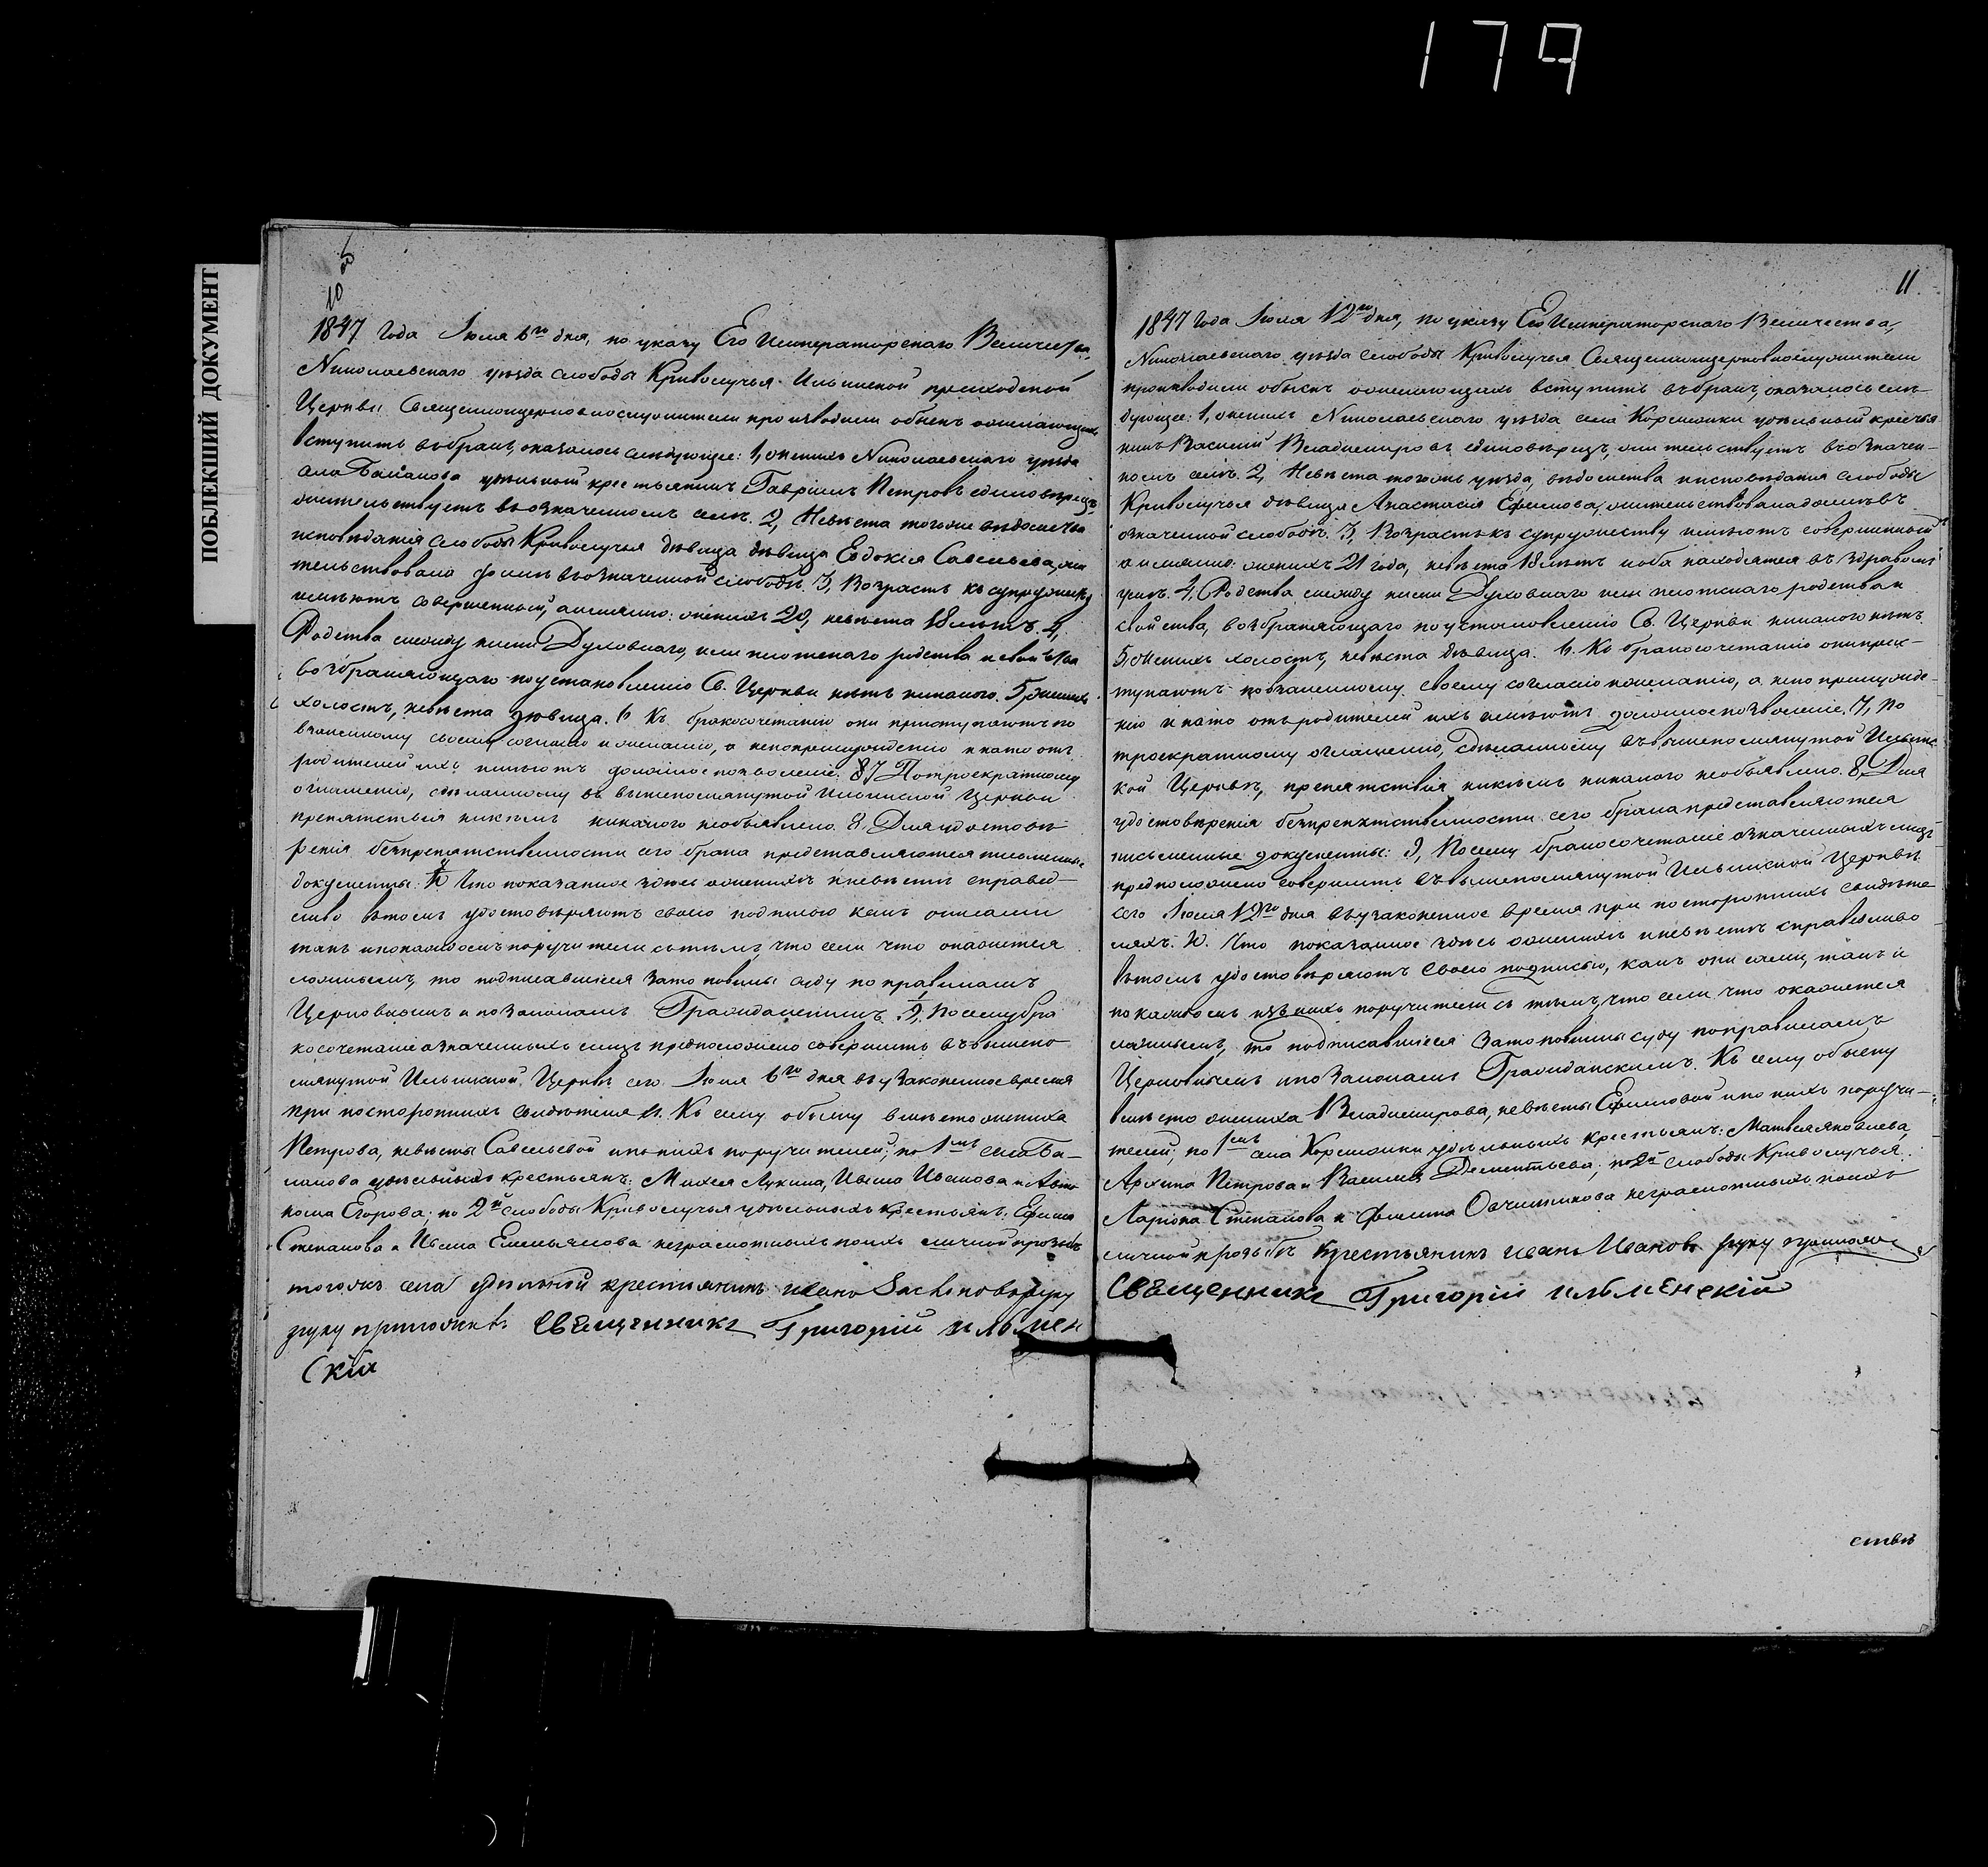 179
ПОБЛЕКШИЙ ДОКУМЕНТ
10
1847 года Іюля 6го дня, по указу Его Императорскаго Величества,
Николаевскаго уѣзда слободы Криволучья Ильинской приходской
Церкви Священноцерковнослужители производили обыскъ о желающихъ
вступить въ бракъ, оказалось слѣдующее: 1, женихъ Николаевскаго уѣзда
села Балакова удѣльный крестьянинъ Гавріилъ Петровъ единовѣрецъ
жительствуетъ въ означенномъ селѣ. 2, Невѣста тогоже вѣдомства
исповѣданія слободы Криволучья дѣвица дѣвица Евдокія Савельева, жи
тельствовала въ означенной слободѣ. 3, Возрастъ къ супружеству
имѣютъ совершенный, а именно: женихъ 20, невѣста 18 лѣтъ. 4,
Родства между ними Духовнаго, или плотскаго родства и свойства
возбраняющаго по установленію Св. Церкви нѣтъ никакого. 5, женихъ
холостъ, невѣста дѣвица. 6 Къ бракосочетанію они приступаютъ по
взаимному своему согласію и желанію, а не по принужденію и на то отъ
родителей ихъ имѣютъ должное позволеніе. 7 По троекратному
оглашенію, сдѣланному въ вышепомянутой Ильинской Церкви
препятствія никѣмъ никакого необъявлено. 8, Для удостовѣ
ренія безпрепятственности сего брака представляются письменные
документы: Что показанное здѣсь о женихѣ и невѣстѣ справед-
ливо въ томъ удостовѣряютъ своею подписью какъ они сами
такъ и по каждомъ поручители съ тѣмъ, что если что окажется
ложнымъ, то подписавшіеся за то повинны суду по правиламъ
Церковнымъ и по законамъ Гражданскимъ. 9, Посему бра
косочетаніе означенныхъ лицъ предположено совершить въ вышепо
мянутой Ильинской Церквѣ сего Іюля 6го дня въ узаконенное время
при постороннихъ свидѣтеляхъ. Къ сему обыску вмѣсто жениха
Петрова, невѣсты Савельевой и по нихъ поручителей; по 1мъ села Ба-
лакова удѣльныхъ крестьянъ: Михея Лукина, Ивана Иванова и Авто
нома Егорова; по 2й слободы Криволучья удѣльныхъ крестьянъ: Ефима
Степанова и Ивана Емельянова неграмотныхъ по ихъ личной прозьбѣ
тогожъ села удѣльной крестьянинъ Ивано руку
руку приложивъ Свѣщенникъ Григорій Ильмен
скій
11
1847 года Іюля 12го дня, по указу Его Императорскаго Величества,
Николаевскаго уѣзда слободы Криволучья Священноцерковнослужители
производили обыскъ о желающихъ вступить въ бракъ, оказалось слѣ-
дующее: 1, женихъ Николаевскаго уѣзда села Кормежки удѣльный крестья
нинъ Василій Владимировъ единовѣрецъ, жительствуетъ въ означен-
номъ селѣ. 2, Невѣста тогожъ уѣзда, вѣдомства и исповѣданія слободы
Криволучья дѣвица Анастасія Ефимова, жительствовала въ
означенной слободѣ. 3, Возрастъ къ супружеству имѣютъ совершенный
а именно: женихъ 21 года, невѣста 18 лѣтъ и оба находятся въ здравомъ
умѣ. 4, Родства между ними Духовнаго или плотскаго родства и
свойства, возбраняющаго по установленію Св. Церкви никакого нѣтъ.
5, женихъ холостъ, невѣста дѣвица. 6. Къ бракосочетанію они прис-
тупаютъ по взаимному своему согласію и желанію, а не по принужде-
нію и на то отъ родителей ихъ имѣютъ должное позволеніе. 7, По
троекратному оглашенію, сдѣланному въ вышепомянутой Ильинс
кой Церквѣ, препятствія никѣмъ никакого необъявлено. 8, Для
удостовѣренія безпрепятственности сего брака представляются
письменные документы: 9, Посему бракосочетаніе означенныхъ лицъ
предположено совершить въ вышепомянутой Ильинской Церквѣ
сего Іюля 12го дня въ узаконенное время при постороннихъ свидѣте
ляхъ. 10. Что показанное здѣсь о женихѣ и невѣстѣ справедливо
въ томъ удостовѣряютъ своею подписью, какъ они сами, такъ и
по каждомъ изъ нихъ поручители съ тѣмъ, что если что окажется
ложнымъ, то подписавшіеся за то повинны суду по правиламъ
Церковнымъ и по законамъ Гражданскимъ. Къ сему обыску
вмѣсто жениха Владимирова, невѣсты Ефимовой и по нихъ поручи-
телей; по 1мъ села Кормежки удѣльныхъ крестьянъ: Матвея Яковлева,
Архипа Петрова и Василія Дементьева; по 2й слободы Криволучья
Ларіона Степанова и Филипа Овчинникова неграмотныхъ по ихъ
личной прозьбѣ крестьянинъ Иванъ Ивановъ руку приложилъ
Свѣщенникъ Григорій Ильменскій
ствѣ